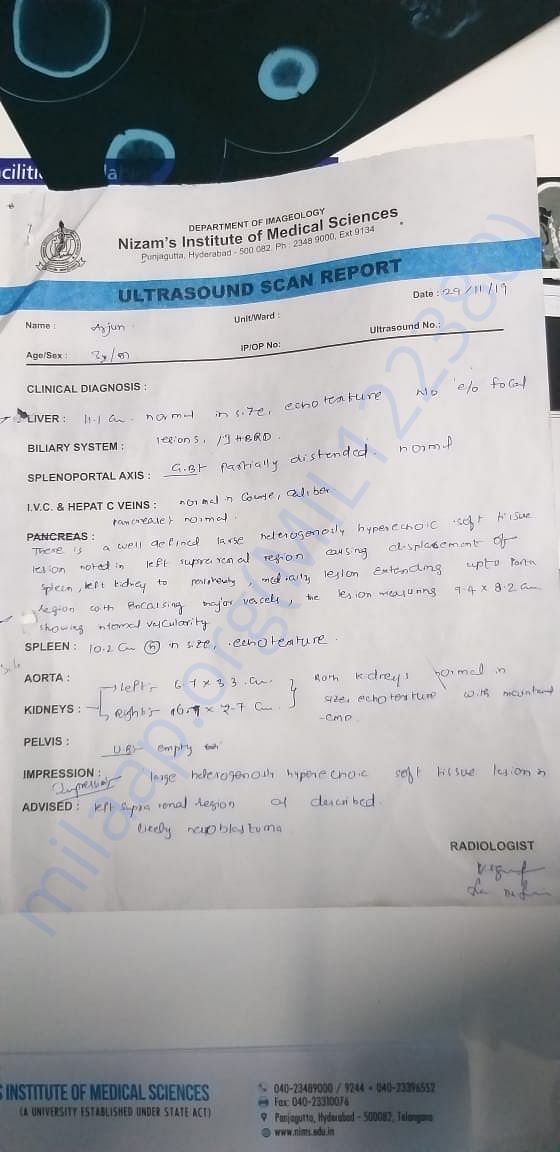 ciliti
DEPARTMENT OF IMAGEOLOGY
Nizam's Institute of Medical Sciences
Punjagutta, Hyderabad - 500 082. Ph : 2348 9000, Ext 9134
ULTRASOUND SCAN REPORT
Date : 29/11/19
Name : Arjun
Unit/Ward :
Ultrasound No.:
Age/Sex :
IP/OP No:
CLINICAL DIAGNOSIS :
LIVER : 11.1 cm. normal in size, echotexture No e/o focal
BILIARY SYSTEM : lesions, IHBRD.
SPLENOPORTAL AXIS : G.B:- Partially distended. normal
I.V.C. & HEPAT C VEINS : normal in course, caliber
Pancreas:- normal.
PANCREAS :
There is a well defined large heterogenously hyperechoic soft tissue
lesion noted in left suprarenal region causing displacement of
spleen, left kidney to medially lesion extending upto Porta
region with encasing major vessels, the lesion measuring 9.4 x 8.2 cm
showing internal vascularity.
SPLEEN : 10.2 cm (N) in size, echotexture.
AORTA : left:- 6.7 x 3.3 cm. Both kidneys normal in
KIDNEYS : Right:- x 2.7 cm. size, echotexture with maintained
- CMD
PELVIS :
U.B:- empty
IMPRESSION :
Impression large heterogenously hyperechoic soft tissue lesion in
ADVISED : left supra renal region as described.
likely neuroblastoma
RADIOLOGIST
milaap.org(MIL122380)
S INSTITUTE OF MEDICAL SCIENCES
(A UNIVERSITY ESTABLISHED UNDER STATE ACT)
040-23489000 / 9244 • 040-23396552
Fax: 040-23310076
Panjagutta, Hyderabad - 500082, Telangana
www.nims.edu.in